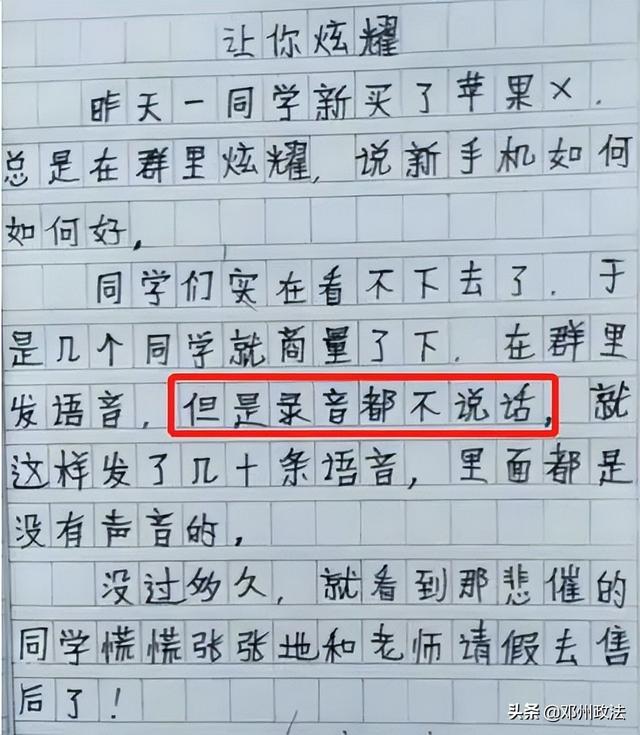 让你炫耀
昨天一同学新买了苹果X.
总是在群里炫耀,说新手机如何
如何好,
同学们实在看不下去了.于
是几个同学就商量了下.在群里
发语音,但是录音都不说话,就
这样发了几十条语音,里面都是
没有声音的,
没过多久,就看到那悲催的
同学慌慌张张地和老师请假去售
后了!
头条@邓州政法